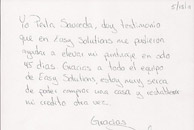 Yo Pedro Saavedra, doy testimonio
que en Easy Solutions me pudieron
ayudar a elevar mi puntaje en solo
45 dias. Gracias a todo el equipo
de Easy Solutions estoy muy cerca
de poder comprar una casa y restablecer
mi credito otra vez.
Gracias